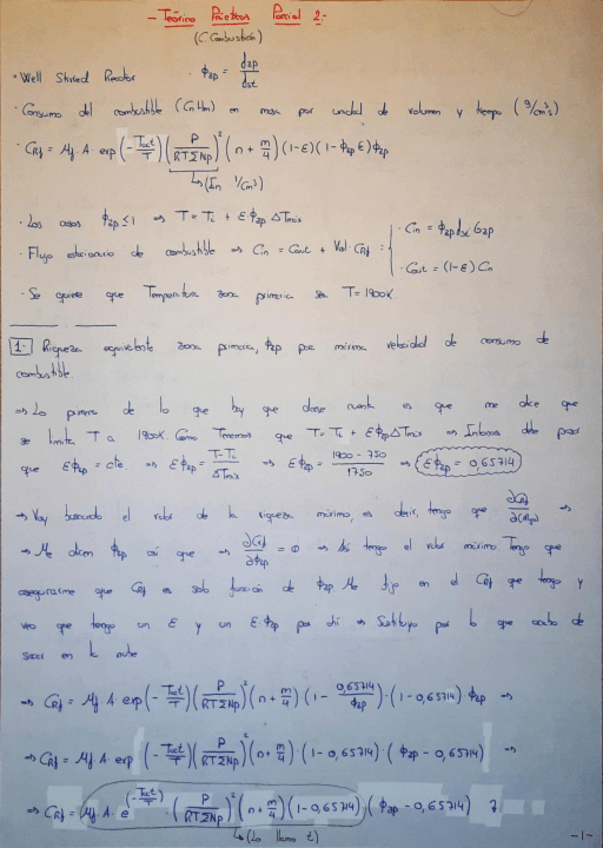 - Teórico Prácticos Parcial 2:-
(C. Combustión)
· Well Stirred Reactor · ϕzp = dzp/dst
· Consumo del combustible (CnHm) en masa por unidad de volumen y tiempo (g/cm³s)
· CRf = Mf·A·exp(-Tact/T)(P/RTΣNp)²(n+m/4)(1-ε)(1-ϕzpε)ϕzp
↳(In 1/cm³)
· Los casos ϕzp≤1 ⇒ T = Ti + εϕzpΔTmix
· Flujo estacionario de combustible ⇒ Cin = Cout + Vol·CRf = { · Cin = ϕzp dst Gzp
· Cout = (1-ε)Cin
· Se quiere que Temperatura zona primaria sea T=1900K.
1- Riqueza equivalente zona primaria, ϕzp por máxima velocidad de consumo de
combustible.
⇒ Lo primero de lo que hay que darse cuenta es que me dice que
se limita T a 1900K. Como Tenemos que T = Ti + εϕzpΔTmix ⇒
que εϕzp = cte. ⇒ εϕzp = T-Ti/ΔTmix ⇒ εϕzp = 1900-750/1750 ⇒ εϕzp = 0,65714
→ Voy buscando el valor de la riqueza máximo, es decir, tengo que ⇒
→ Me dicen ϕzp así que ⇒ ∂CRf/∂ϕzp = 0 ⇒ Así tengo el valor máximo. Tengo que
asegurarme que CRf es solo función de ϕzp. Me fijo en el CRf que tengo y
veo que tengo un ε y un ε·ϕzp por ahí ⇒ Sustituyo por lo que acabo de
sacar en la nube
⇒ CRf = Mf·A·exp(-Tact/T)(P/RTΣNp)²(n+m/4)(1-0,65714/ϕzp)·(1-0,65714)ϕzp ⇒
⇒ CRf = Mf·A·exp(-Tact/T)(P/RTΣNp)²(n+m/4)·(1-0,65714)·(ϕzp-0,65714) ⇒
⇒ CRf = Mf·A·e^(-Tact/T)·(P/RTΣNp)²(n+m/4)(1-0,65714)(ϕzp-0,65714)
↳(Lo llamo t)
-1-